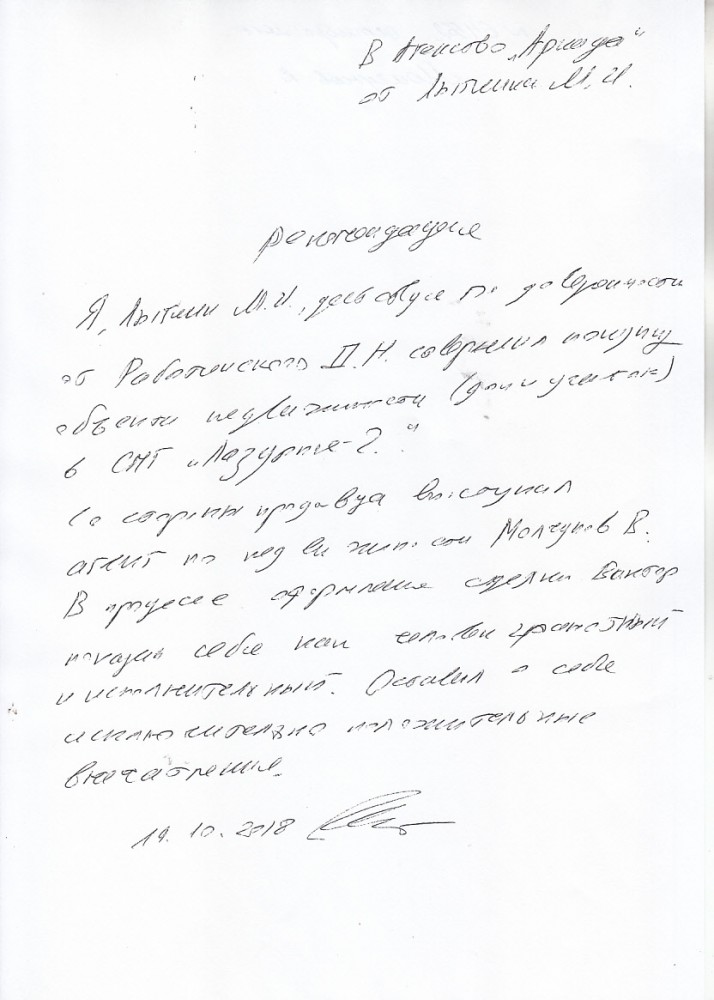 В Агенство „Ариада"
от Лыткина М.И.
рекомендация
Я, Лыткин М.И., действуя по доверенности
от Работинского Д.Н. совершил покупку
объекта недвижимости (дом и участок)
в СНТ „Лазурное-2."
Со стороны продавца выступал
агент по недвижимости Молчунов В.
В процессе оформления сделки Виктор
показал себя как человек грамотный
и исполнительный. Оставил о себе
исключительно положительные
впечатления.
19.10.2018